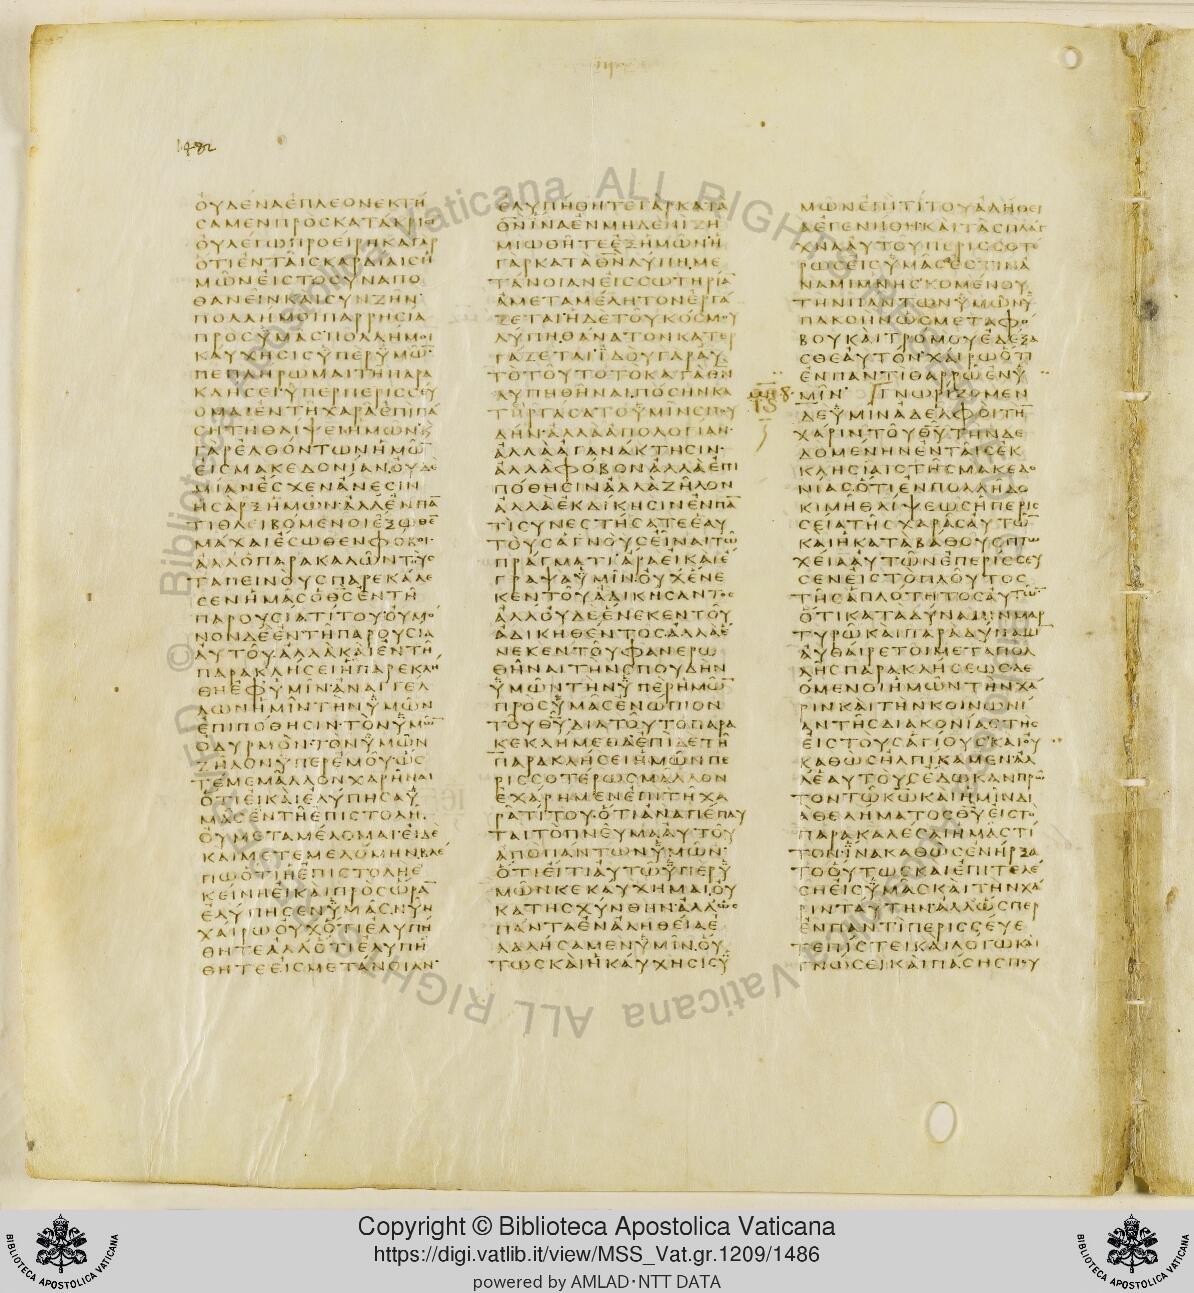 1482
ΟΥΔΕΝΑΕΠΛΕΟΝΕΚΤΗ
ΣΑΜΕΝΠΡΟΣΚΑΤΑΚΡΙΣΙ
ΟΥΛΕΓΩΠΡΟΕΙΡΗΚΑΓΑΡ
ΟΤΙΕΝΤΑΙΣΚΑΡΔΙΑΙΣΗ
ΜΩΝΕΙΣΤΟΣΥΝΑΠΟ
ΘΑΝΕΙΝΚΑΙΣΥΝΖΗΝ·
ΠΟΛΛΗΜΟΙΠΑΡΡΗΣΙΑ
ΠΡΟΣΥΜΑΣΠΟΛΛΗΜΟΙ
ΚΑΥΧΗΣΙΣΥΠΕΡΥΜΩ̅
ΠΕΠΛΗΡΩΜΑΙΤΗΠΑΡΑ
ΚΛΗΣΕΙΥΠΕΡΠΕΡΙΣΣΕΥ
ΟΜΑΙΕΝΤΗΧΑΡΑΕΠΙΠΑ
ΣΗΤΗΘΛΙΨΕΙΗΜΩΝΚ
ΓΑΡΕΛΘΟΝΤΩΝΗΜΩ̅
ΕΙΣΜΑΚΕΔΟΝΙΑΝ.ΟΥΔΕ
ΜΙΑΝΕΣΧΕΝΑΝΕΣΙΝ
ΗΣΑΡΞΗΜΩΝ·ΑΛΛΕΝΠΑ̅
ΤΙΘΛΕΙΒΟΜΕΝΟΙΕΞΩΘΕ̅
ΜΑΧΑΙΕΣΩΘΕΝΦΟΒΟΙ·
ΑΛΛΟΠΑΡΑΚΑΛΩΝΤΟΥΣ
ΤΑΠΕΙΝΟΥΣΠΑΡΕΚΑΛΕ
ΣΕΝΗΜΑΣΟΘΣΕΝΤΗ
ΠΑΡΟΥΣΙΑΤΙΤΟΥ·ΟΥΜΟ
ΝΟΝΔΕΕΝΤΗΠΑΡΟΥΣΙΑ
ΑΥΤΟΥ·ΑΛΛΑΚΑΙΕΝΤΗ
ΠΑΡΑΚΛΗΣΕΙΗΠΑΡΕΚΛΗ
ΘΗΕΦΥΜΙΝ·ΑΝΑΓΓΕΛ
ΛΩΝΗΜΙΝΤΗΝΥΜΩΝ
ΕΠΙΠΟΘΗΣΙΝ·ΤΟΝΥΜΩ̅
ΟΔΥΡΜΟΝ·ΤΟΝΥΜΩΝ
ΖΗΛΟΝΥΠΕΡΕΜΟΥΩΣ
ΤΕΜΕΜΑΛΛΟΝΧΑΡΗΝΑΙ
ΟΤΙΕΙΚΑΙΕΛΥΠΗΣΑΥ
ΜΑΣΕΝΤΗΕΠΙΣΤΟΛΗ.
ΟΥΜΕΤΑΜΕΛΟΜΑΙ·ΕΙΔΕ
ΚΑΙΜΕΤΕΜΕΛΟΜΗΝ.ΒΛΕ
ΠΩΟΤΙΗΕΠΙΣΤΟΛΗΕ
ΚΕΙΝΗΕΙΚΑΙΠΡΟΣΩΡΑ̅
ΕΛΥΠΗΣΕΝΥΜΑΣ.ΝΥΝ
ΧΑΙΡΩΟΥΧΟΤΙΕΛΥΠΗ
ΘΗΤΕΑΛΛΟΤΙΕΛΥΠΗ
ΘΗΤΕΕΙΣΜΕΤΑΝΟΙΑΝ·
ΕΛΥΠΗΘΗΤΕΓΑΡΚΑΤΑ
ΘΝΙΝΑΕΝΜΗΔΕΝΙΖΗ
ΜΙΩΘΗΤΕΕΞΗΜΩΝ·Η
ΓΑΡΚΑΤΑΘΝΛΥΠΗ.ΜΕ
ΤΑΝΟΙΑΝΕΙΣΣΩΤΗΡΙΑ̅
ΑΜΕΤΑΜΕΛΗΤΟΝΕΡΓΑ
ΖΕΤΑΙ·ΗΔΕΤΟΥΚΟΣΜΟΥ
ΛΥΠΗ.ΘΑΝΑΤΟΝΚΑΤΕΡ
ΓΑΖΕΤΑΙ·ΙΔΟΥΓΑΡΑΥ
ΤΟΤΟΥΤΟΤΟΚΑΤΑΘΝ
ΛΥΠΗΘΗΝΑΙ.ΠΟΣΗΝΚΑ
ΤΗΡΓΑΣΑΤΟΥΜΙΝΣΠΟΥ
ΔΗΝ·ΑΛΛΑΑΠΟΛΟΓΙΑΝ·
ΑΛΛΑΑΓΑΝΑΚΤΗΣΙΝ·
ΑΛΛΑΦΟΒΟΝΑΛΛΑΕΠΙ
ΠΟΘΗΣΙΝΑΛΛΑΖΗΛΟΝ
ΑΛΛΑΕΚΔΙΚΗΣΙΝΕΝΠΑ̅
ΤΙΣΥΝΕΣΤΗΣΑΤΕΕΑΥ
ΤΟΥΣΑΓΝΟΥΣΕΙΝΑΙΤΩ
ΠΡΑΓΜΑΤΙ·ΑΡΑΕΙΚΑΙΕ
ΓΡΑΨΑΥΜΙΝ.ΟΥΧΕΝΕ
ΚΕΝΤΟΥΑΔΙΚΗΣΑΝΤΟΣ
ΑΛΛΟΥΔΕΕΝΕΚΕΝΤΟΥ
ΑΔΙΚΗΘΕΝΤΟΣ.ΑΛΛΑΕ
ΝΕΚΕΝΤΟΥΦΑΝΕΡΩ
ΘΗΝΑΙΤΗΝΣΠΟΥΔΗΝ
ΥΜΩΝΤΗΝΥΠΕΡΗΜΩ̅
ΠΡΟΣΥΜΑΣΕΝΩΠΙΟΝ
ΤΟΥΘΥ·ΔΙΑΤΟΥΤΟΠΑΡΑ
ΚΕΚΛΗΜΕΘΑ·ΕΠΙΔΕΤΗ
ΠΑΡΑΚΛΗΣΕΙΗΜΩΝΠΕ
ΡΙΣΣΟΤΕΡΩΣΜΑΛΛΟΝ
ΕΧΑΡΗΜΕΝΕΠΙΤΗΧΑ
ΡΑΤΙΤΟΥ·ΟΤΙΑΝΑΠΕΠΑΥ
ΤΑΙΤΟΠΝΕΥΜΑΑΥΤΟΥ
ΑΠΟΠΑΝΤΩΝΥΜΩΝ·
ΟΤΙΕΙΤΙΑΥΤΩΥΠΕΡΥ
ΜΩΝΚΕΚΑΥΧΗΜΑΙ.ΟΥ
ΚΑΤΗΣΧΥΝΘΗΝ·ΑΛΛΩΣ
ΠΑΝΤΑΕΝΑΛΗΘΕΙΑΕ
ΛΑΛΗΣΑΜΕΝΥΜΙΝ.ΟΥ
ΤΩΣΚΑΙΗΚΑΥΧΗΣΙΣΥ
ΜΩΝΕΠΙΤΙΤΟΥΑΛΗΘΕΙ
ΑΕΓΕΝΗΘΗ·ΚΑΙΤΑΣΠΛΑΓ
ΧΝΑΑΥΤΟΥΠΕΡΙΣΣΟΤΕ
ΡΩΣΕΙΣΥΜΑΣΕΣΤΙΝΑ
ΝΑΜΙΜΝΗΣΚΟΜΕΝΟΥ
ΤΗΝΠΑΝΤΩΝΥΜΩΝΥ
ΠΑΚΟΗΝΩΣΜΕΤΑΦΟ
ΒΟΥΚΑΙΤΡΟΜΟΥΕΔΕΞΑ
ΣΘΕΑΥΤΟΝ·ΧΑΙΡΩΟΤΙ
ΕΝΠΑΝΤΙΘΑΡΡΩΕΝΥ
ΜΙΝ· ΓΝΩΡΙΖΟΜΕΝ
ΔΕΥΜΙΝΑΔΕΛΦΟΙΤΗ̅
ΧΑΡΙΝΤΟΥΘΥΤΗΝΔΕ
ΔΟΜΕΝΗΝΕΝΤΑΙΣΕΚ
ΚΛΗΣΙΑΙΣΤΗΣΜΑΚΕΔΟ
ΝΙΑΣ.ΟΤΙΕΝΠΟΛΛΗΔΟ
ΚΙΜΗΘΛΙΨΕΩΣΗΠΕΡΙΣ
ΣΕΙΑΤΗΣΧΑΡΑΣΑΥΤΩ̅
ΚΑΙΗΚΑΤΑΒΑΘΟΥΣΠΤΩ
ΧΕΙΑΑΥΤΩΝΕΠΕΡΙΣΣΕΥ
ΣΕΝΕΙΣΤΟΠΛΟΥΤΟΣ
ΤΗΣΑΠΛΟΤΗΤΟΣΑΥΤΩ̅
ΟΤΙΚΑΤΑΔΥΝΑΜΙΝΜΑΡ
ΤΥΡΩΚΑΙΠΑΡΑΔΥΝΑΜΙ̅
ΑΥΘΑΙΡΕΤΟΙΜΕΤΑΠΟΛ
ΛΗΣΠΑΡΑΚΛΗΣΕΩΣΔΕ
ΟΜΕΝΟΙΗΜΩΝΤΗΝΧΑ
ΡΙΝΚΑΙΤΗΝΚΟΙΝΩΝΙ
ΑΝΤΗΣΔΙΑΚΟΝΙΑΣΤΗΣ
ΕΙΣΤΟΥΣΑΓΙΟΥΣ·ΚΑΙΟΥ
ΚΑΘΩΣΗΛΠΙΚΑΜΕΝ·ΑΛ
ΛΕΑΥΤΟΥΣΕΔΩΚΑΝΠΡΩ
ΤΟΝΤΩΚΩΚΑΙΗΜΙΝΔΙ
ΑΘΕΛΗΜΑΤΟΣΘΥΕΙΣΤΟ
ΠΑΡΑΚΑΛΕΣΑΙΗΜΑΣΤΙ
ΤΟΝ·ΙΝΑΚΑΘΩΣΕΝΗΡΞΑ
ΤΟΟΥΤΩΣΚΑΙΕΠΙΤΕΛΕ
ΣΗΕΙΣΥΜΑΣΚΑΙΤΗΝΧΑ
ΡΙΝΤΑΥΤΗΝ·ΑΛΛΩΣΠΕΡ
ΕΝΠΑΝΤΙΠΕΡΙΣΣΕΥΕ
ΤΕΠΙΣΤΕΙΚΑΙΛΟΓΩΚΑΙ
ΓΝΩΣΕΙΚΑΙΠΑΣΗΣΠΟΥ
Copyright © Biblioteca Apostolica Vaticana
https://digi.vatlib.it/view/MSS_Vat.gr.1209/1486
powered by AMLAD·NTT DATA
BIBLIOTECA APOSTOLICA VATICANA
BIBLIOTECA APOSTOLICA VATICANA